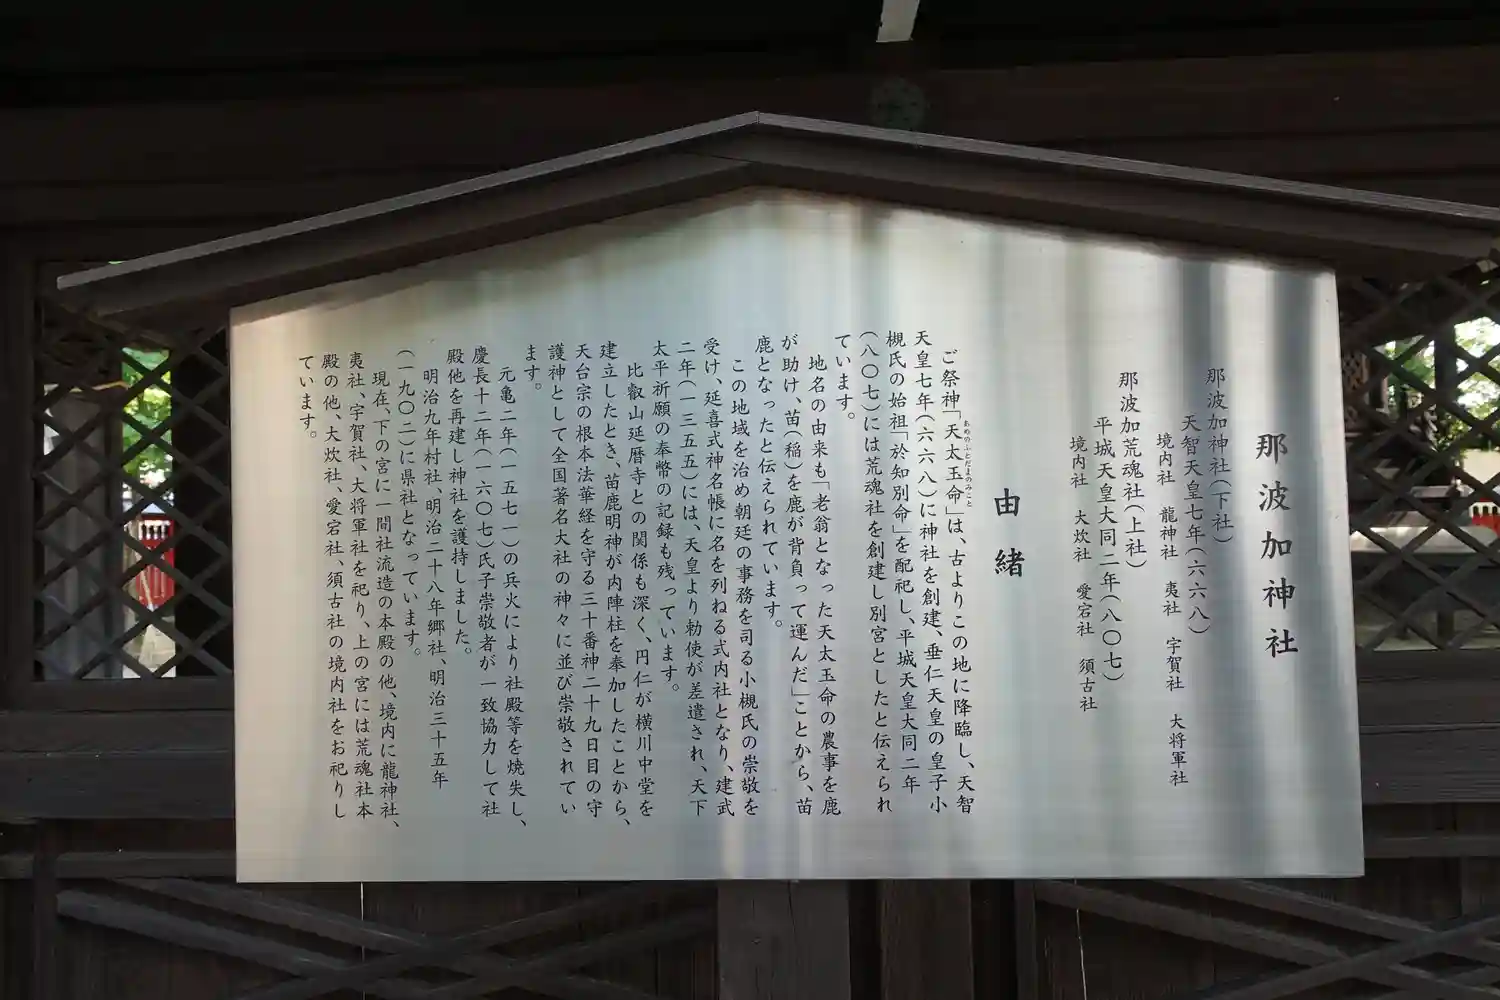 那波加神社
那波加神社(下社)
天智天皇七年(六六八)
境内社 龍神社 夷社 宇賀社 大将軍社
那波加荒魂社(上社)
平城天皇大同二年(八〇七)
境内社 大炊社 愛宕社 須古社
由緒
ご祭神「天太玉命」は、古よりこの地に降臨し、天智
あめのふとだまのみこと
天皇七年(六六八)に神社を創建、垂仁天皇の皇子小
槻氏の始祖「於知別命」を配祀し、平城天皇大同二年
(八〇七)には荒魂社を創建し別宮としたと伝えられ
ています。
地名の由来も「老翁となった天太玉命の農事を鹿
が助け、苗(稲)を鹿が背負って運んだ」ことから、苗
鹿となったと伝えられています。
この地域を治め朝廷の事務を司る小槻氏の崇敬を
受け、延喜式神名帳に名を列ねる式内社となり、建武
二年(一三五五)には、天皇より勅使が差遣され、天下
太平祈願の奉幣の記録も残っています。
比叡山延暦寺との関係も深く、円仁が横川中堂を
建立したとき、苗鹿明神が内陣柱を奉加したことから、
天台宗の根本法華経を守る三十番神二十九日目の守
護神として全国著名大社の神々に並び崇敬されてい
ます。
元亀二年(一五七一)の兵火により社殿等を焼失し、
慶長十二年(一六〇七)氏子崇敬者が一致協力して社
殿他を再建し神社を護持しました。
明治九年村社、明治二十八年郷社、明治三十五年
(一九〇二)に県社となっています。
現在、下の宮に一間社流造の本殿の他、境内に龍神社、
夷社、宇賀社、大将軍社を祀り、上の宮には荒魂社本
殿の他、大炊社、愛宕社、須古社の境内社をお祀りし
ています。